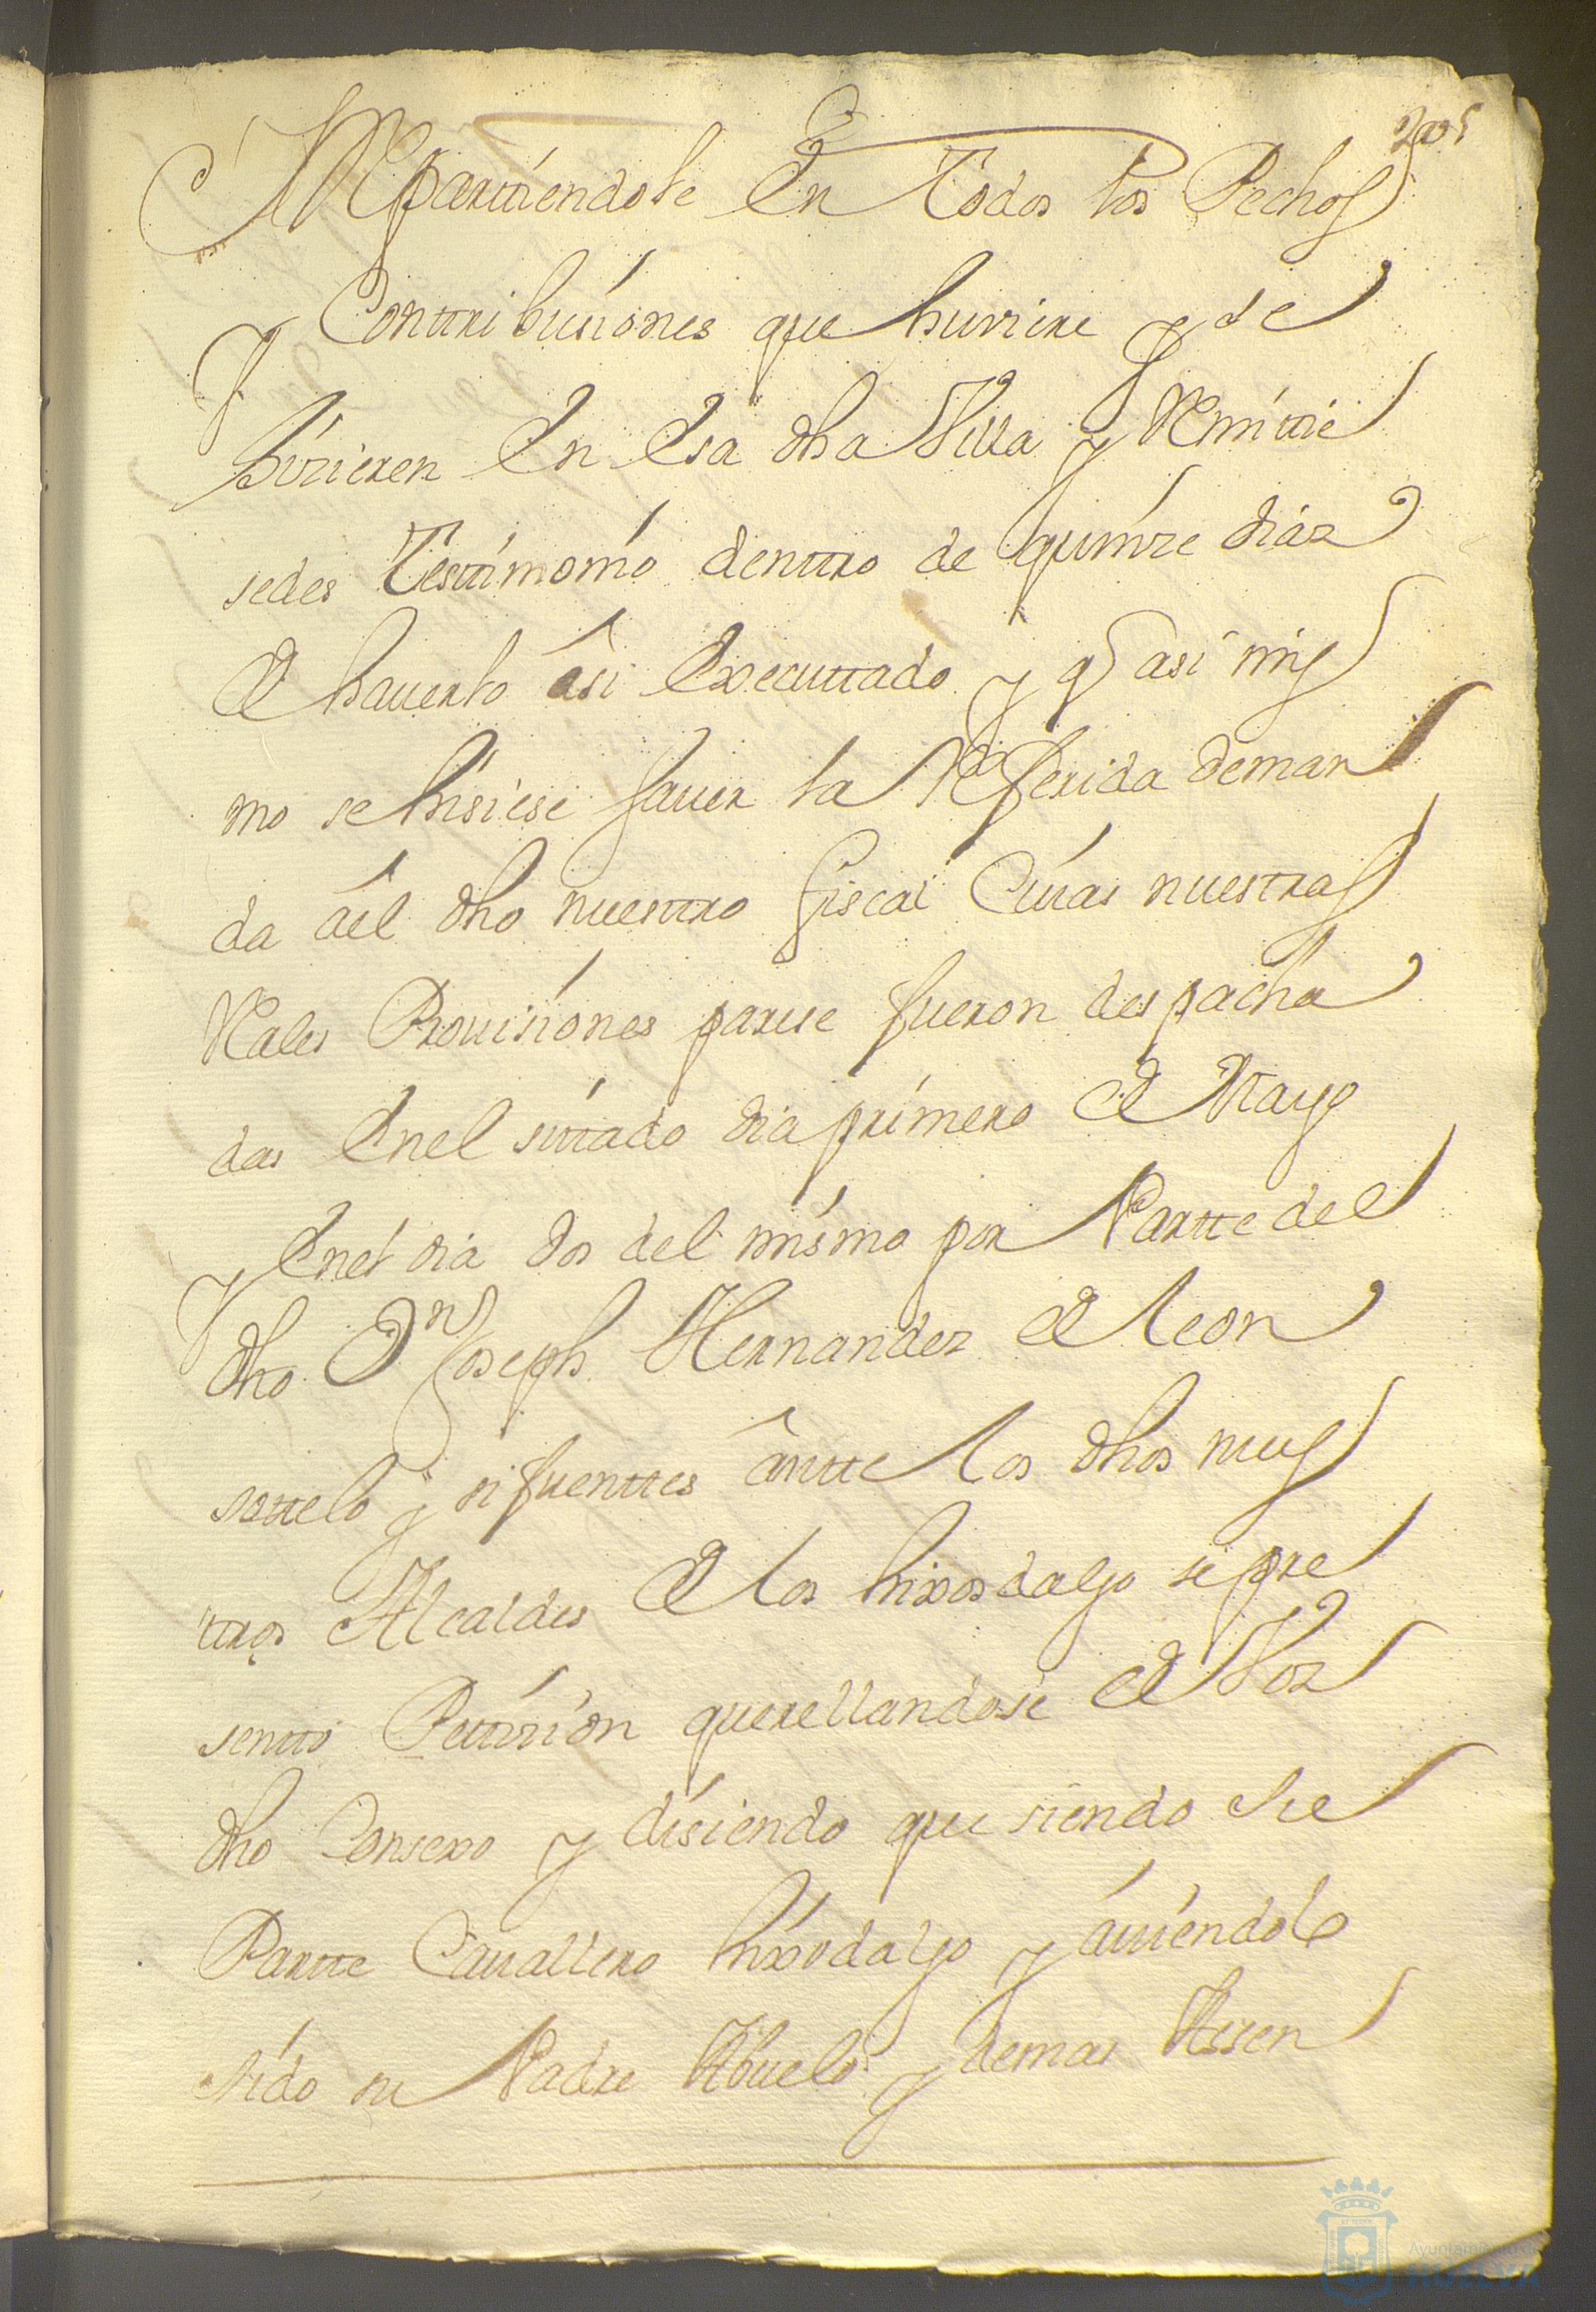 Repartiendole En Todos los Pechos
y Conttribusiones que huviere y de
vivieren En Esa dha Villa y Remittie
sedes Testtimonio denttro de quinze dias
de haverlo âsi Executtado y q asi mis
mo se hisiese saver la Referida deman
da âel dho nuesttro fiscal Cuias nuestras
Rales Provisiones parese fueron despacha
das Enel sittado dia primero de Mayo
y Enel dia dos del mismo por Partte del
dho Dn Joseph Hernandez de leon
sottelo y sifuenttes ântte los dhos nues
ttros Alcaldes de los hixosdalgo se pre
sentto Pettizion querellandose de Vos
dho Consexo y disiendo que siendo su
Partte Cavallero hixodalgo y âviendolo
sido su Padre Abuelo y demas Assen
Ayuntamiento de
HUELVA